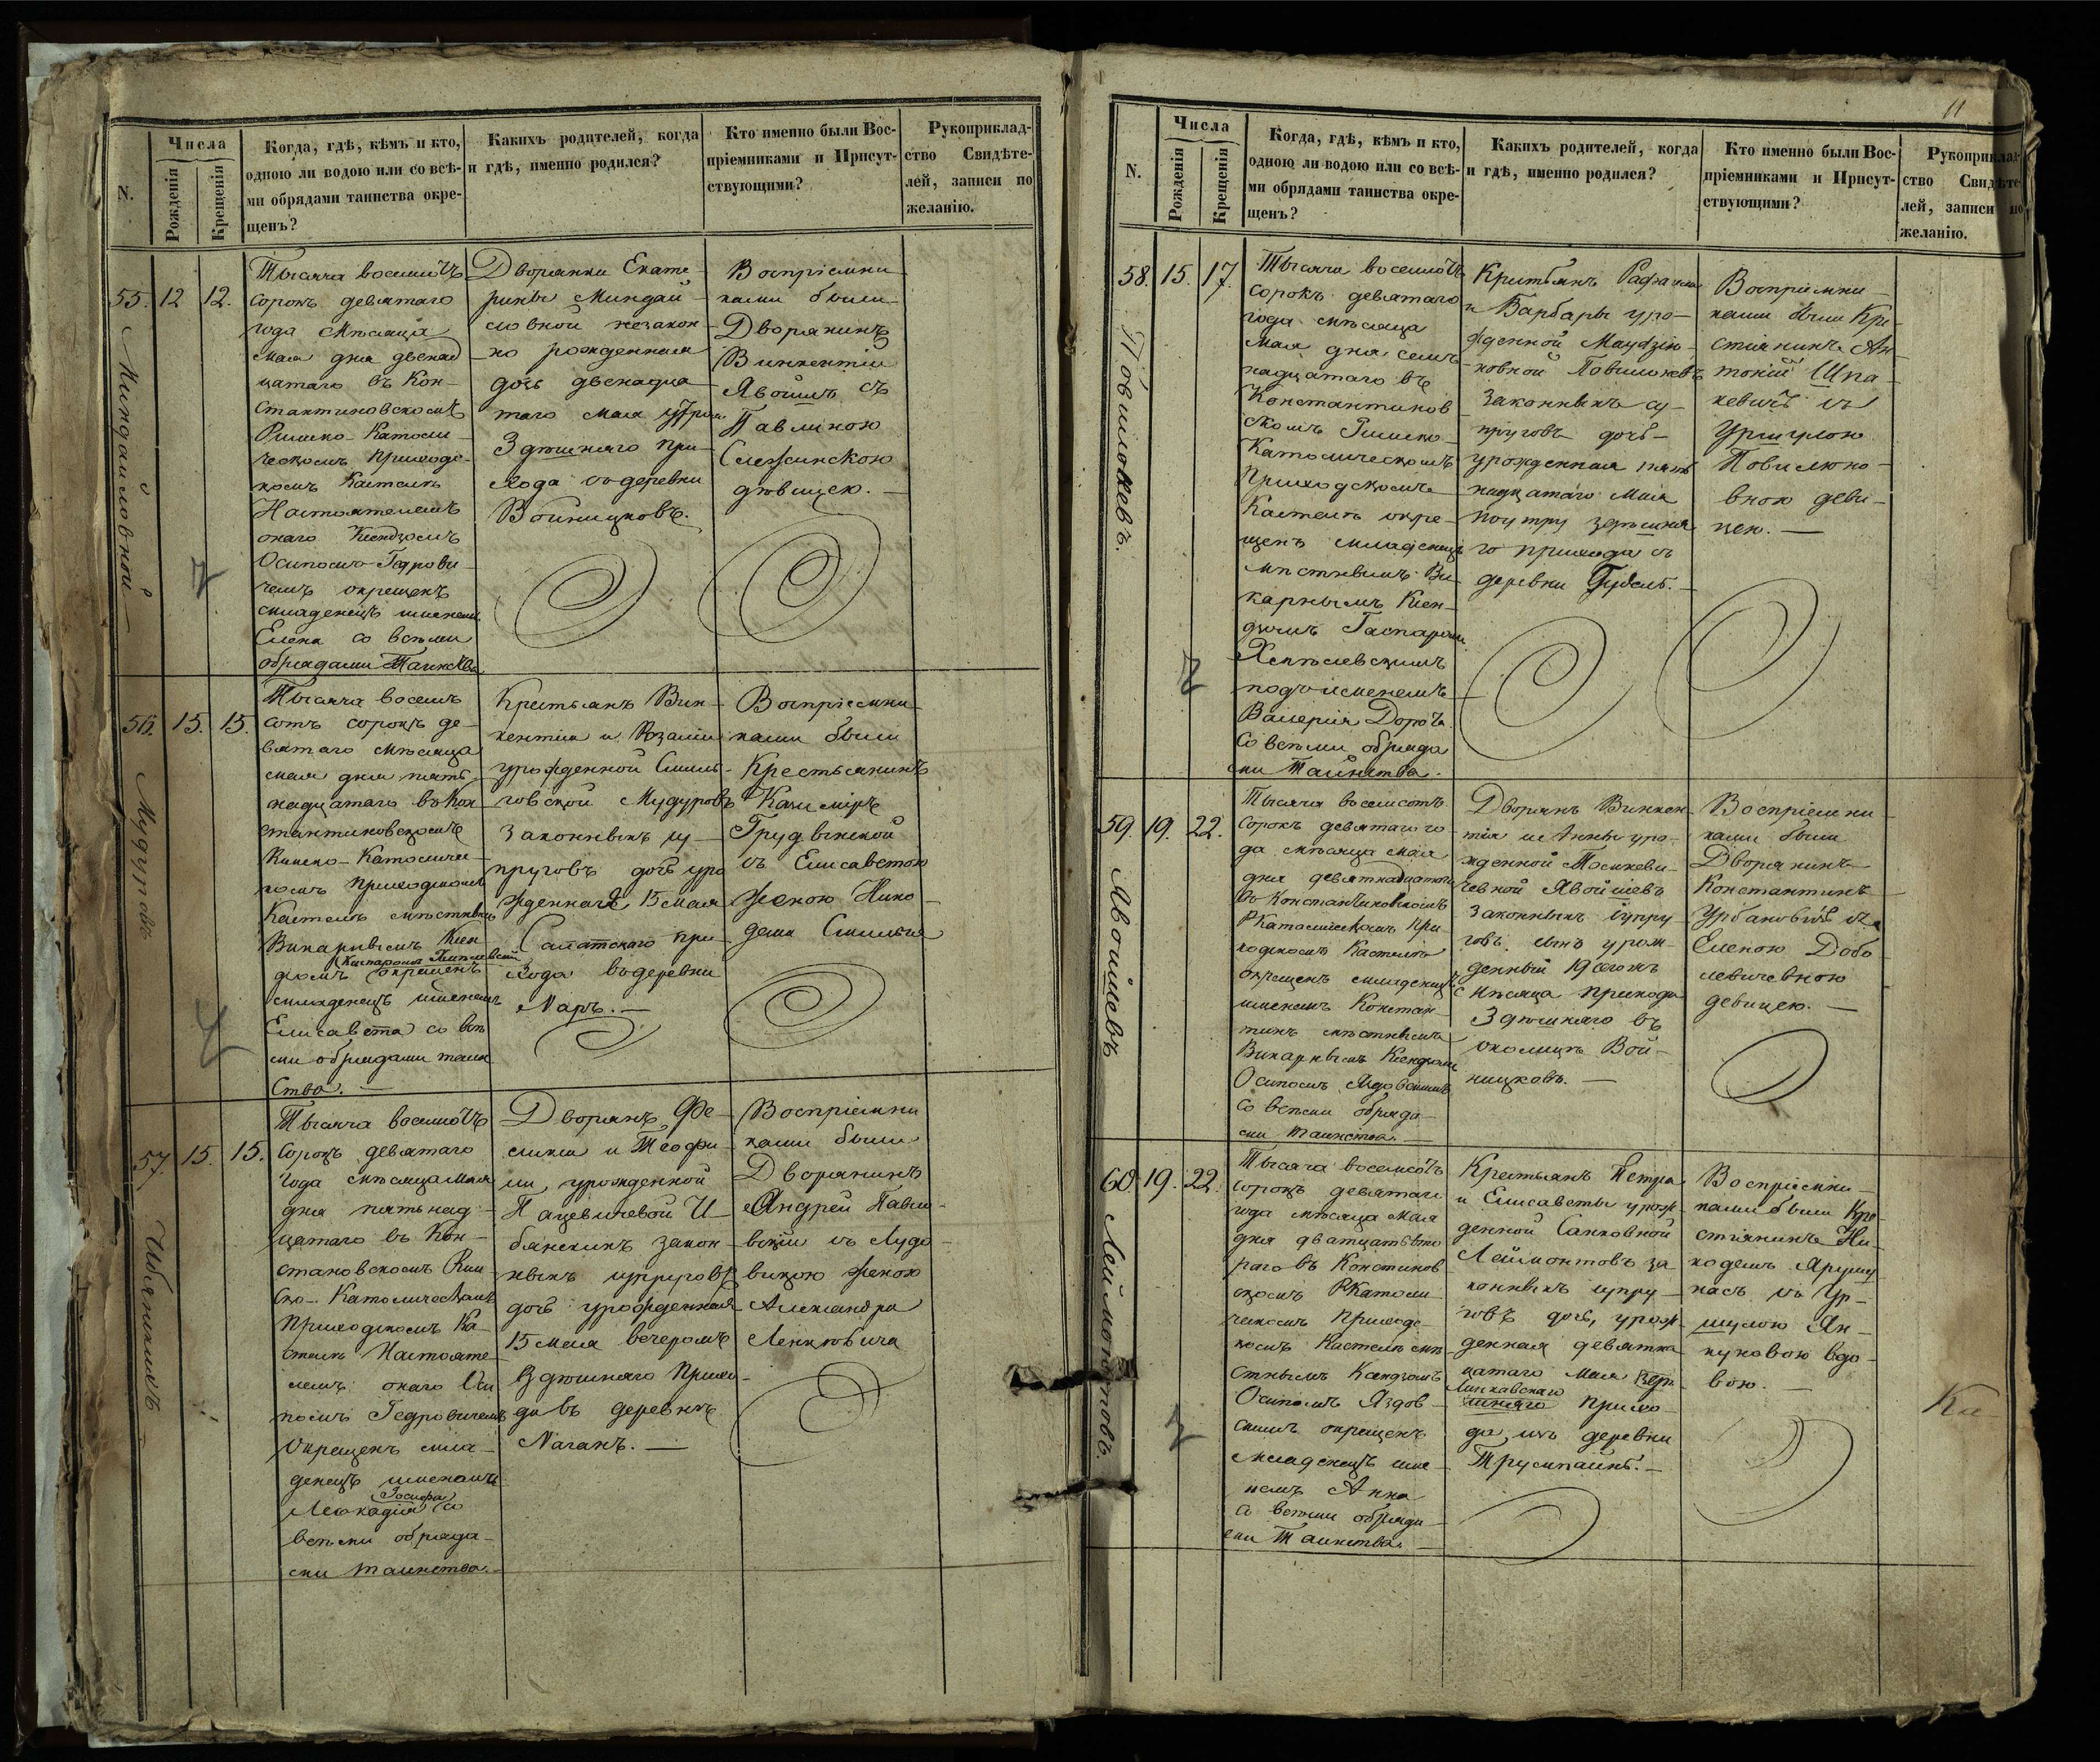 N.
Числа
Рожденія
Крещенія
Когда, гдѣ, кѣмъ и кто,
одною ли водою или со всѣ-
ми обрядами таинства окре-
щенъ?
Какихъ родителей, когда
и гдѣ, именно родился?
Кто именно были Вос-
пріемниками и Присут-
ствующими?
Рукоприклад-
ство Свидѣте-
лей, записи по
желанію.
55. 12 12.
Миндайловной
Тысяча восемьсотъ
сорокъ девятаго
года мѣсяца
мая дня двенад
цатаго въ Кон-
стантиновскомъ
Римско-Католи-
ческомъ приходс-
комъ Костелѣ
Настоятелемъ
онаго Ксендзомъ
Осипомъ Гедрови-
чемъ окрещенъ
младенецъ именемъ
Елена со всѣми
обрядами Таинства
Дворянки Екате-
рины Миндай-
ловной незакон-
но рожденная
дочь двенадца-
таго мая утромъ
Здѣшняго при-
хода въ деревни
Войницковъ.
Воспріемни-
ками были
Дворянинъ
Викентій
Явойшъ съ
Павлиною
дѣвицею. —
56. 15. 15.
Мудуровъ
Тысяча восемь
сотъ сорокъ де-
вятаго мѣсяца
мая дня пят-
надцатаго въ Кон-
стантиновскомъ
Римско-Католичес-
комъ приходскомъ
Костелѣ мѣстнымъ
Викарнымъ Ксен-
дзомъ окрещенъ
младенецъ именемъ
Елисавета со всѣ
ми обрядами таин
ства. —
Крестьянъ Вин-
кентія и Розаліи
урожденной Смиль-
говской Мудуровъ
законныхъ су-
пруговъ дочь уро
жденная 15 мая
Салатскаго при-
хода въ деревни
Наръ. —
Воспріемни-
ками были
Крестьянинъ
Казиміръ
съ Елисаветою
женою Нико-
дема Смильгя
57. 15. 15.
Ибянскихъ
Тысяча восемьсотъ
сорокъ девятаго
года мѣсяца мая
дня пятьнад-
цатаго въ Кон-
становскомъ Рим
ско-Католическомъ
Приходскомъ Ко-
стелѣ Настояте-
лемъ онаго Оси
помъ Гедровичемъ
окрещенъ мла-
денецъ именемъ
Іосифа
Леокадія со
всѣми обряда-
ми таинства.-
Дворянъ Фе-
ликса и Теофи-
ли, урожденной
Пацевичевой И-
бянскихъ закон-
ныхъ супруговъ
дочь урожденная
15 мая вечеромъ
Здѣшняго Прихо-
да въ деревнѣ
Наганъ. —
Воспріемни
ками были
Дворянинъ
Андрей Павло-
вскій съ Людо-
викою женою
Александра
Ленковича
11
N.
Числа
Рожденія
Крещенія
Когда, гдѣ, кѣмъ и кто,
одною ли водою или со всѣ-
ми обрядами таинства окре-
щенъ?
Какихъ родителей, когда
и гдѣ, именно родился?
Кто именно были Вос-
пріемниками и Присут-
ствующими?
Рукоприклад-
ство Свидѣте-
лей, записи по
желанію.
58. 15. 17.
Повилоневъ.
Тысяча восемьсотъ
сорокъ девятаго
года мѣсяца
мая дня семь
надцатаго въ
Константинов
скомъ Римско-
Католическомъ
Приходскомъ
Костелѣ окре-
щенъ младенецъ
мѣстнымъ Ви-
карнымъ Ксен-
дзомъ Гаспаромъ
Хмѣлевскимъ
подъ именемъ
Валерія Дорота
со всѣми обряда
ми Таинства.
Кретьянъ Рафаила
и Барбары уро-
жденной
Повилоневъ
законныхъ су-
пруговъ дочь-
урожденная пят
надцатаго Мая
поутру здѣшня
го прихода въ
деревни Гудель. -
Воспріемни-
ками были Кре-
стіянинъ Ан-
тоній Шпа-
кевичъ съ
Уршулою
Повилюно-
вною деви-
цею. —
59. 19. 22.
Явойшевъ
Тысяча восемсотъ
сорокъ девятаго го-
да мѣсяца мая
дня девятнадцатого
въ Константиновскомъ
РКатолическомъ При-
ходскомъ Костелѣ
окрещенъ младенецъ
именемъ Констан-
тинъ мѣстнымъ
Викарнымъ Ксендзомъ
Осипомъ Яздовскимъ
со всѣми обряда-
ми таинства. —
Дворянъ Винкен
тія и Анны уро-
жденной Томкеви-
чевной Явойшевъ
законныхъ супру
говъ сынъ урож-
денный 19 сегожъ
мѣсяца прихода
Здѣшняго въ
околицѣ Вой-
ницковъ. —
Воспріемни-
ками были
Дворянинъ
Константинъ
Урбановичъ съ
Еленою Добо-
левичевною
девицею. —
60. 19. 22.
Леймонтовъ.
Тысяча восемсотъ
сорокъ девятаго
года мѣсяца мая
дня дватцатьвто
раго въ Констинов
скомъ РКатоли-
ческомъ Приходс-
комъ Костелѣ мѣ-
стнымъ Ксендзомъ
Осипомъ Яздов-
скимъ окрещенъ
младенецъ име-
немъ Анна
со всѣми обряда-
ми Таинства. —
Крестьянъ Петра
и Елисаветы урож
денной Санковной
Леймонтовъ за-
конныхъ супру-
говъ дочь, урож-
денная девятна
цатаго мая Здѣ-
Линкавскаго
шняго прихо-
да, въ деревни
Трумпайнъ. —
Воспріемни-
ками были Кре-
стіянинъ Ни-
кодемъ Ярушу
насъ съ Ур-
шулою Ян-
куновою вдо-
вою. —
Ка-